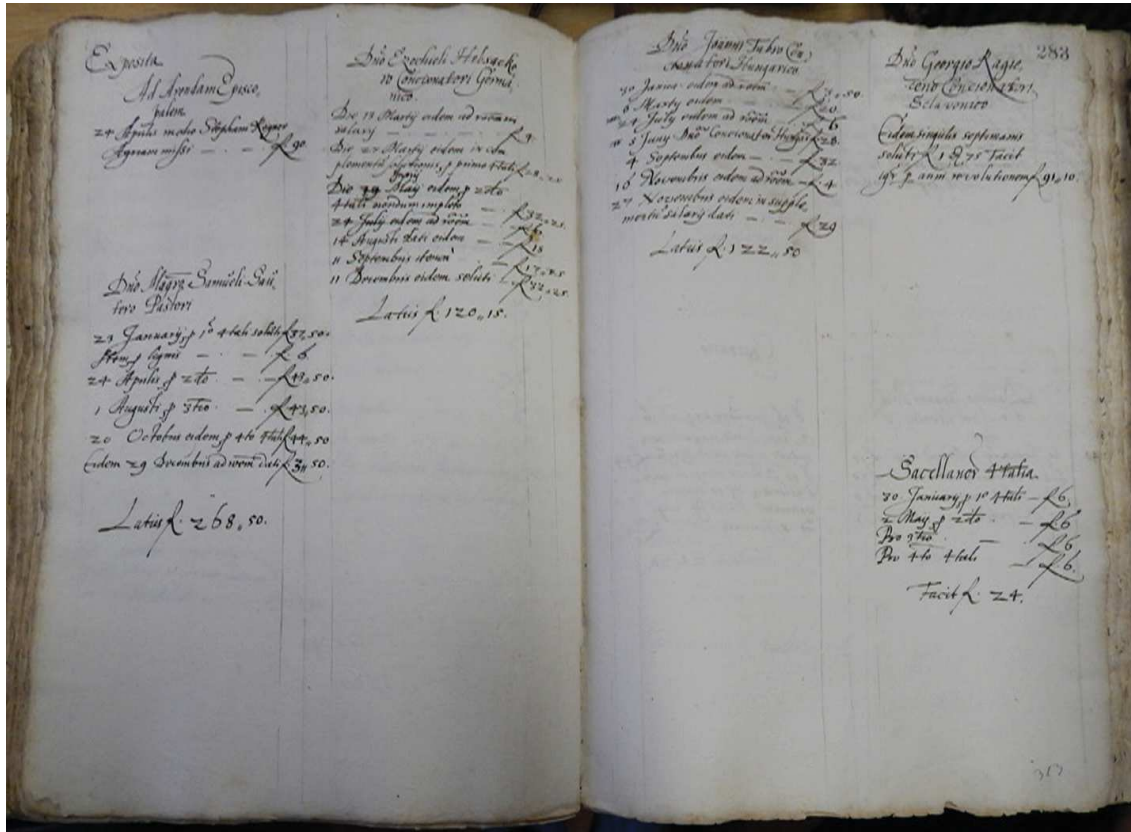 Exposita
Ad Arendam Episco,
palem
24 Aprilis medio Stephani
missi — — — f 90.
Dno Magrō Samueli Sau,
tero Pastori
23 January, p 1o 4tali soluti f 37,50.
Item p lignis — — — f 6
24 Aprilis p 2do — — f 43,,50.
1 Augusti, p 3tio — f 43,50.
20 Octobris eidem, p 4to 4tali f 44,,50
Eidem 29 Decembris ad rōem dati f 3,,50.
Latus f. 268,,50.
Dno Ezechieli Hebsacke,
ro Concionatori Germa,
nico.
Die 13 Marty eidem ad rōem
salary — — — f 9
Die 27 Marty eidem in com
plementū p primo 4tali f 28
Die 29 May eidem, p 2do
4tali nondum impleto — f 32,,25.
24 July eidem ad rōem — f 6
14 Augusti dati eidem — f 15
11 Septembris — f 17
11 Decembris eidem soluti — f 32,,25.
Latus f. 120,,15.
Dno Joanni Tubro Con,
cionatori Hungarico
30 Janua. eidem ad rōem — f 3,,50.
6 Marty eidem — — f 20
24 July eidem ad rōem — f 6
5 Juny Dno Concionatori f 28.
4 Septembris eidem — — f 32
16 Novembris eidem ad rōem — f 4
27 Novembris eidem in supple,
mentū salary dati — — f 29
Latus f. 122,,50
283
Dno Georgio Ragie,
Concionatori
Sclavonico
Eidem singulis septimanis
soluti f 1 d 75 facit
p anni revolutionem f 91,,10.
Sacellanor 4talia
30 January, p 1o 4tali — f 6
2 May, p 2do — f 6
Pro 3tio — f 6
Pro 4to 4tali — f 6.
Facit f. 24.
313